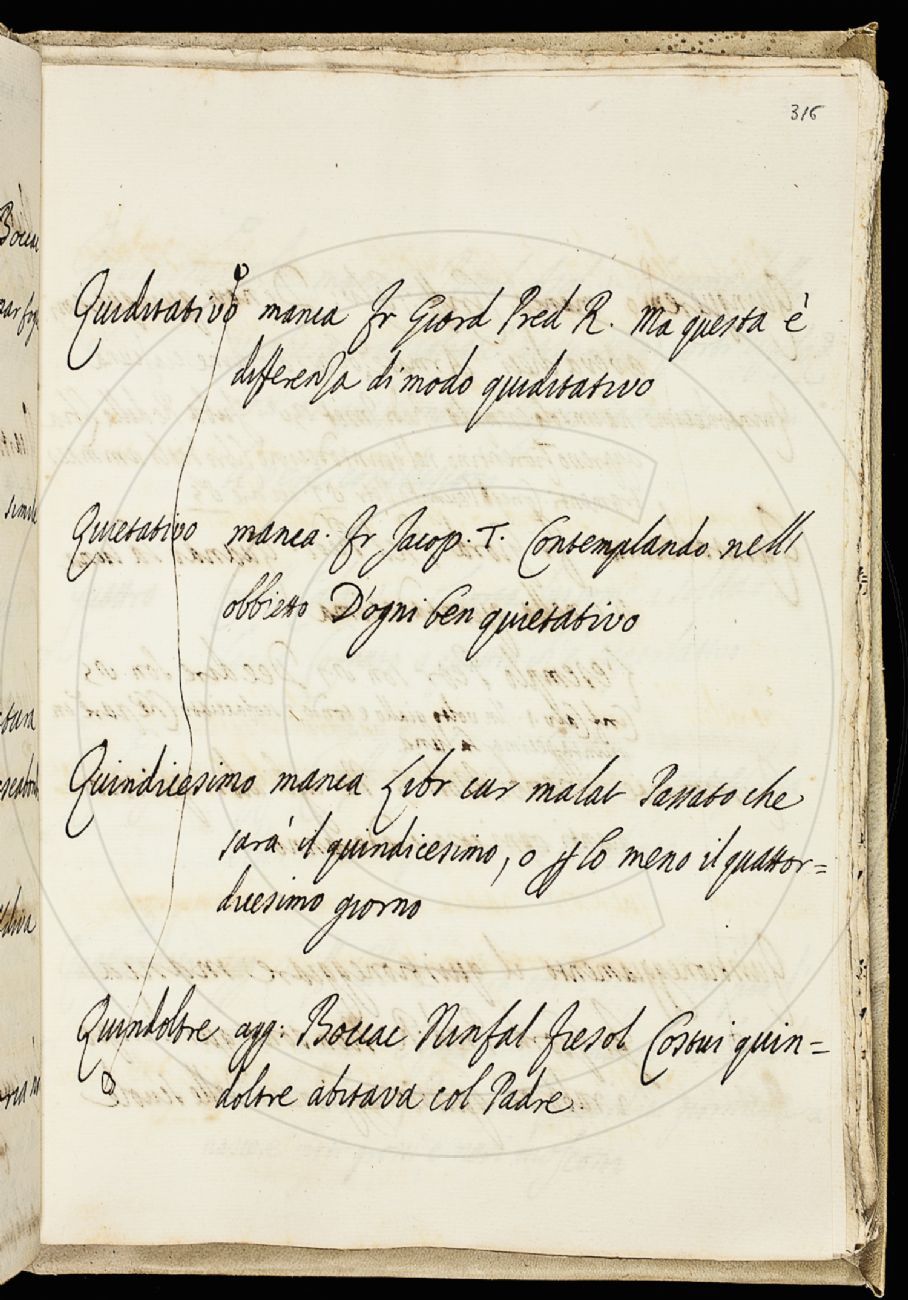 316
Quiditativo manca fr Giord Pred R. Ma questa è
differenza di modo quiditativo
Quietativo manca. fr Jacop. T. Contemplando nell
obbietto D'ogni ben quietativo
Quindicesimo manca Libr cur malat Passato che
sarà il quindicesimo, o p lo meno il quattor=
dicesimo giorno
Quindoltre agg: Boccac Ninfal fiesol Costui quin=
doltre abitava col Padre